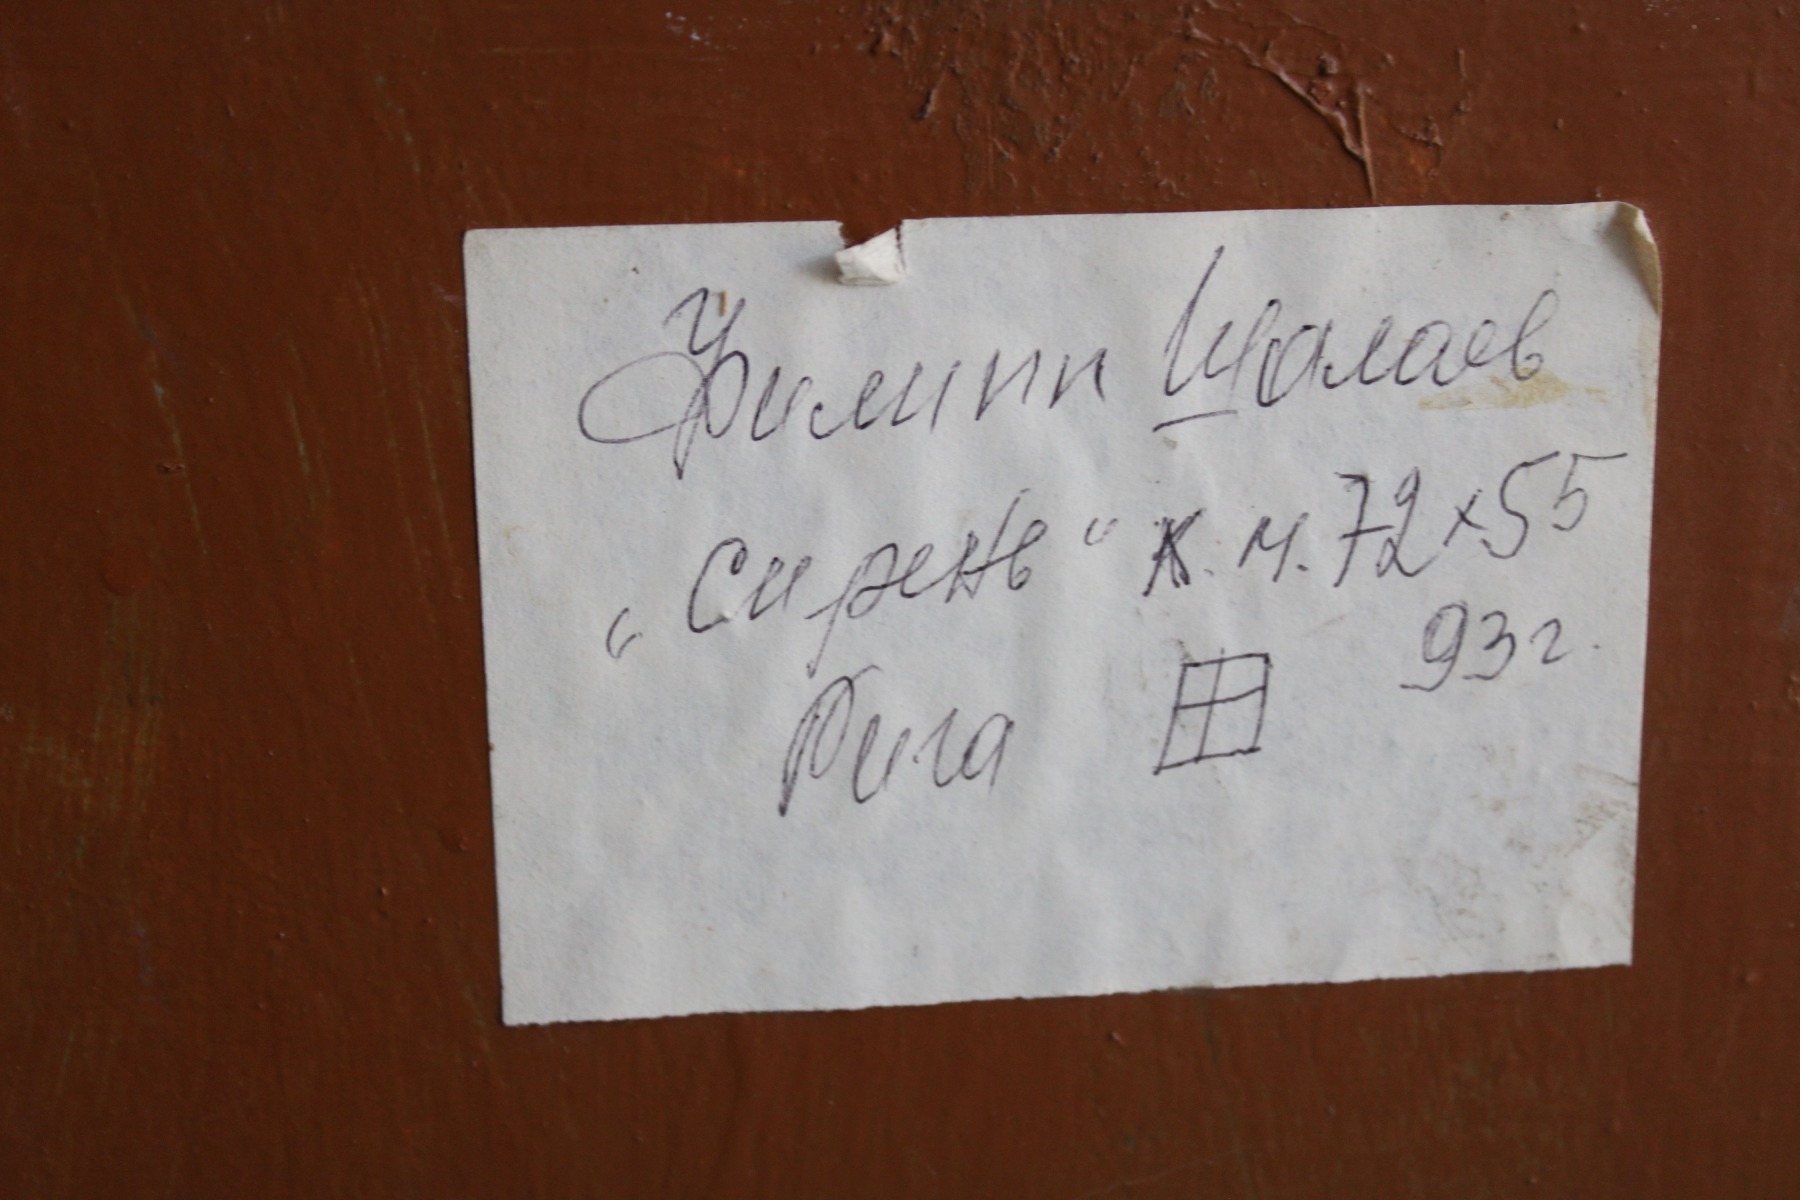 Филипп Шалаев
„Сирень“ к. м. 72x55
93 г.
Рига